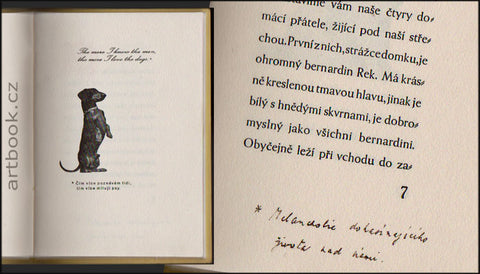 artbook.cz
The more I know the men,
the more I love the dogs.*
* Čím více poznávám lidi,
tím více miluji psy.
stavíme vám naše čtyry do⸗
mácí přátele, žijící pod naší stře⸗
chou. První z nich, strážce domku, je
ohromný bernardin Rek. Má krás⸗
ně kreslenou tmavou hlavu, jinak je
bílý s hnědými skvrnami, je dobro⸗
myslný jako všichni bernardini.
Obyčejně leží při vchodu do za⸗
7
* Melancholie
života nad nimi.